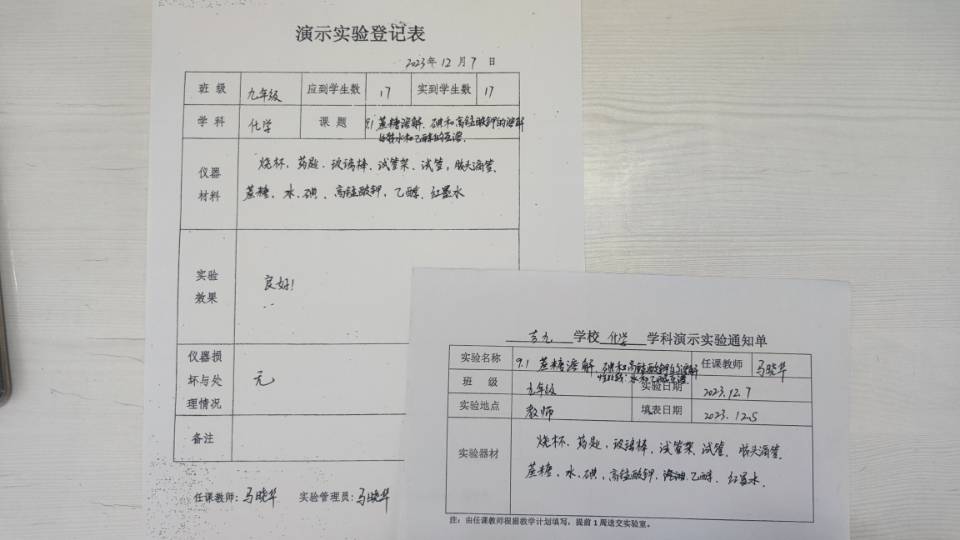 演示实验登记表
2023年12月7日
班级 九年级 应到学生数 17 实到学生数 17
学科 化学 课题 9.1 蔗糖溶解、碘和高锰酸钾的溶解
比较水和乙醇的互溶
仪器材料 烧杯、药匙、玻璃棒、试管架、试管、胶头滴管、
蔗糖、水、碘、高锰酸钾、乙醇、红墨水
实验效果 良好!
仪器损坏与处理情况 无
备注
任课教师:马晓华 实验管理员:马晓华
学校 化学 学科演示实验通知单
实验名称 9.1 蔗糖溶解、碘和高锰酸钾的溶解
水和乙醇互溶 任课教师 马晓华
班级 九年级 实验日期 2023.12.7
实验地点 教师 填表日期 2023.12.5
实验器材 烧杯、药匙、玻璃棒、试管架、试管、胶头滴管、
蔗糖、水、碘、高锰酸钾、乙醇、红墨水、
注:由任课教师根据教学计划填写,提前1周送交实验室。